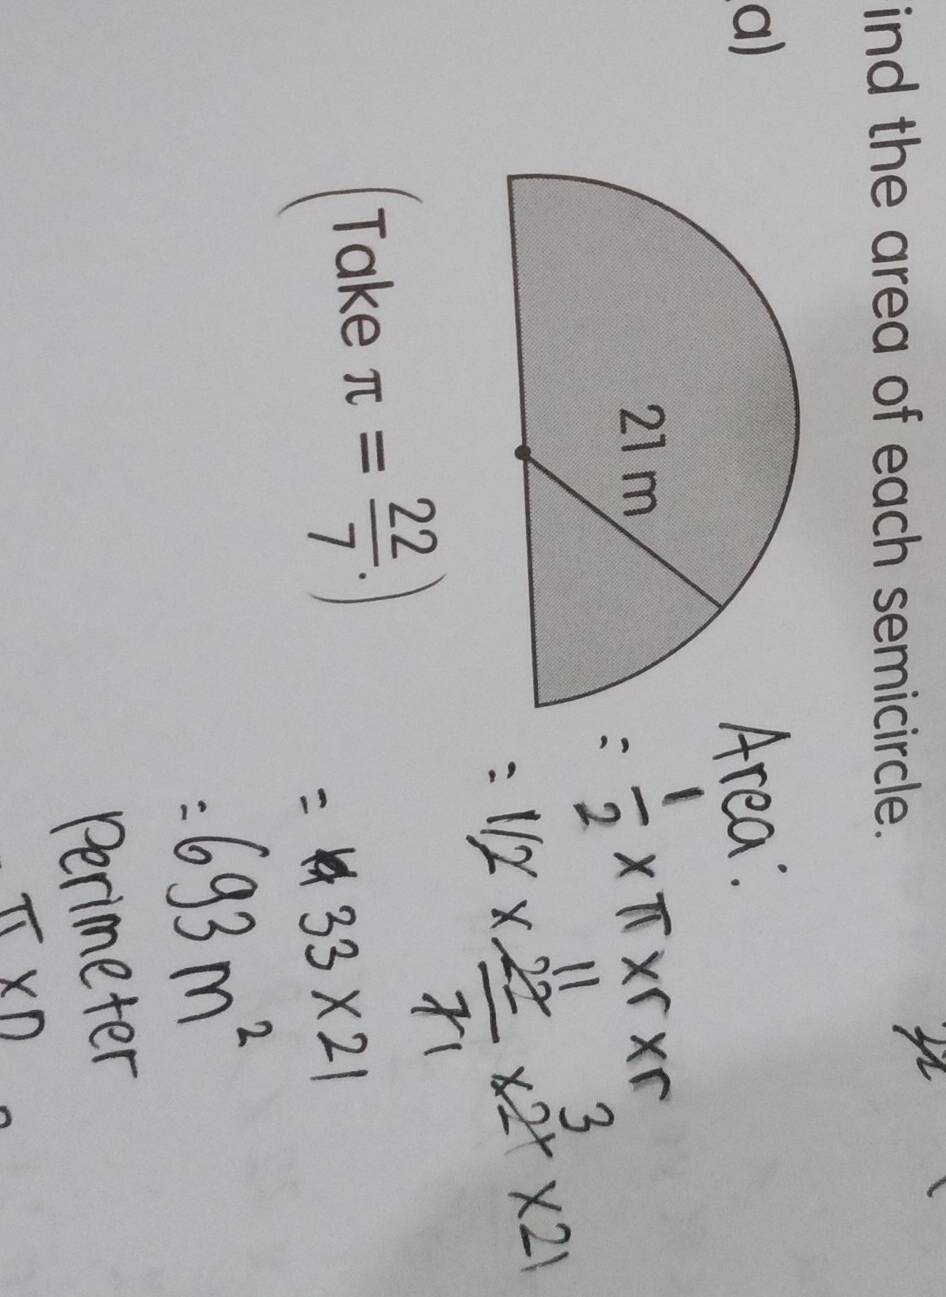 ind the area of each semicircle.
a)
21 m
(Take π = 22/7.)
Area:
= 1/2 × π × r × r
= 1/2 × 22/7 × 21 × 21
11 3
1
= 33 × 21
= 693 m²
Perimeter
π × D